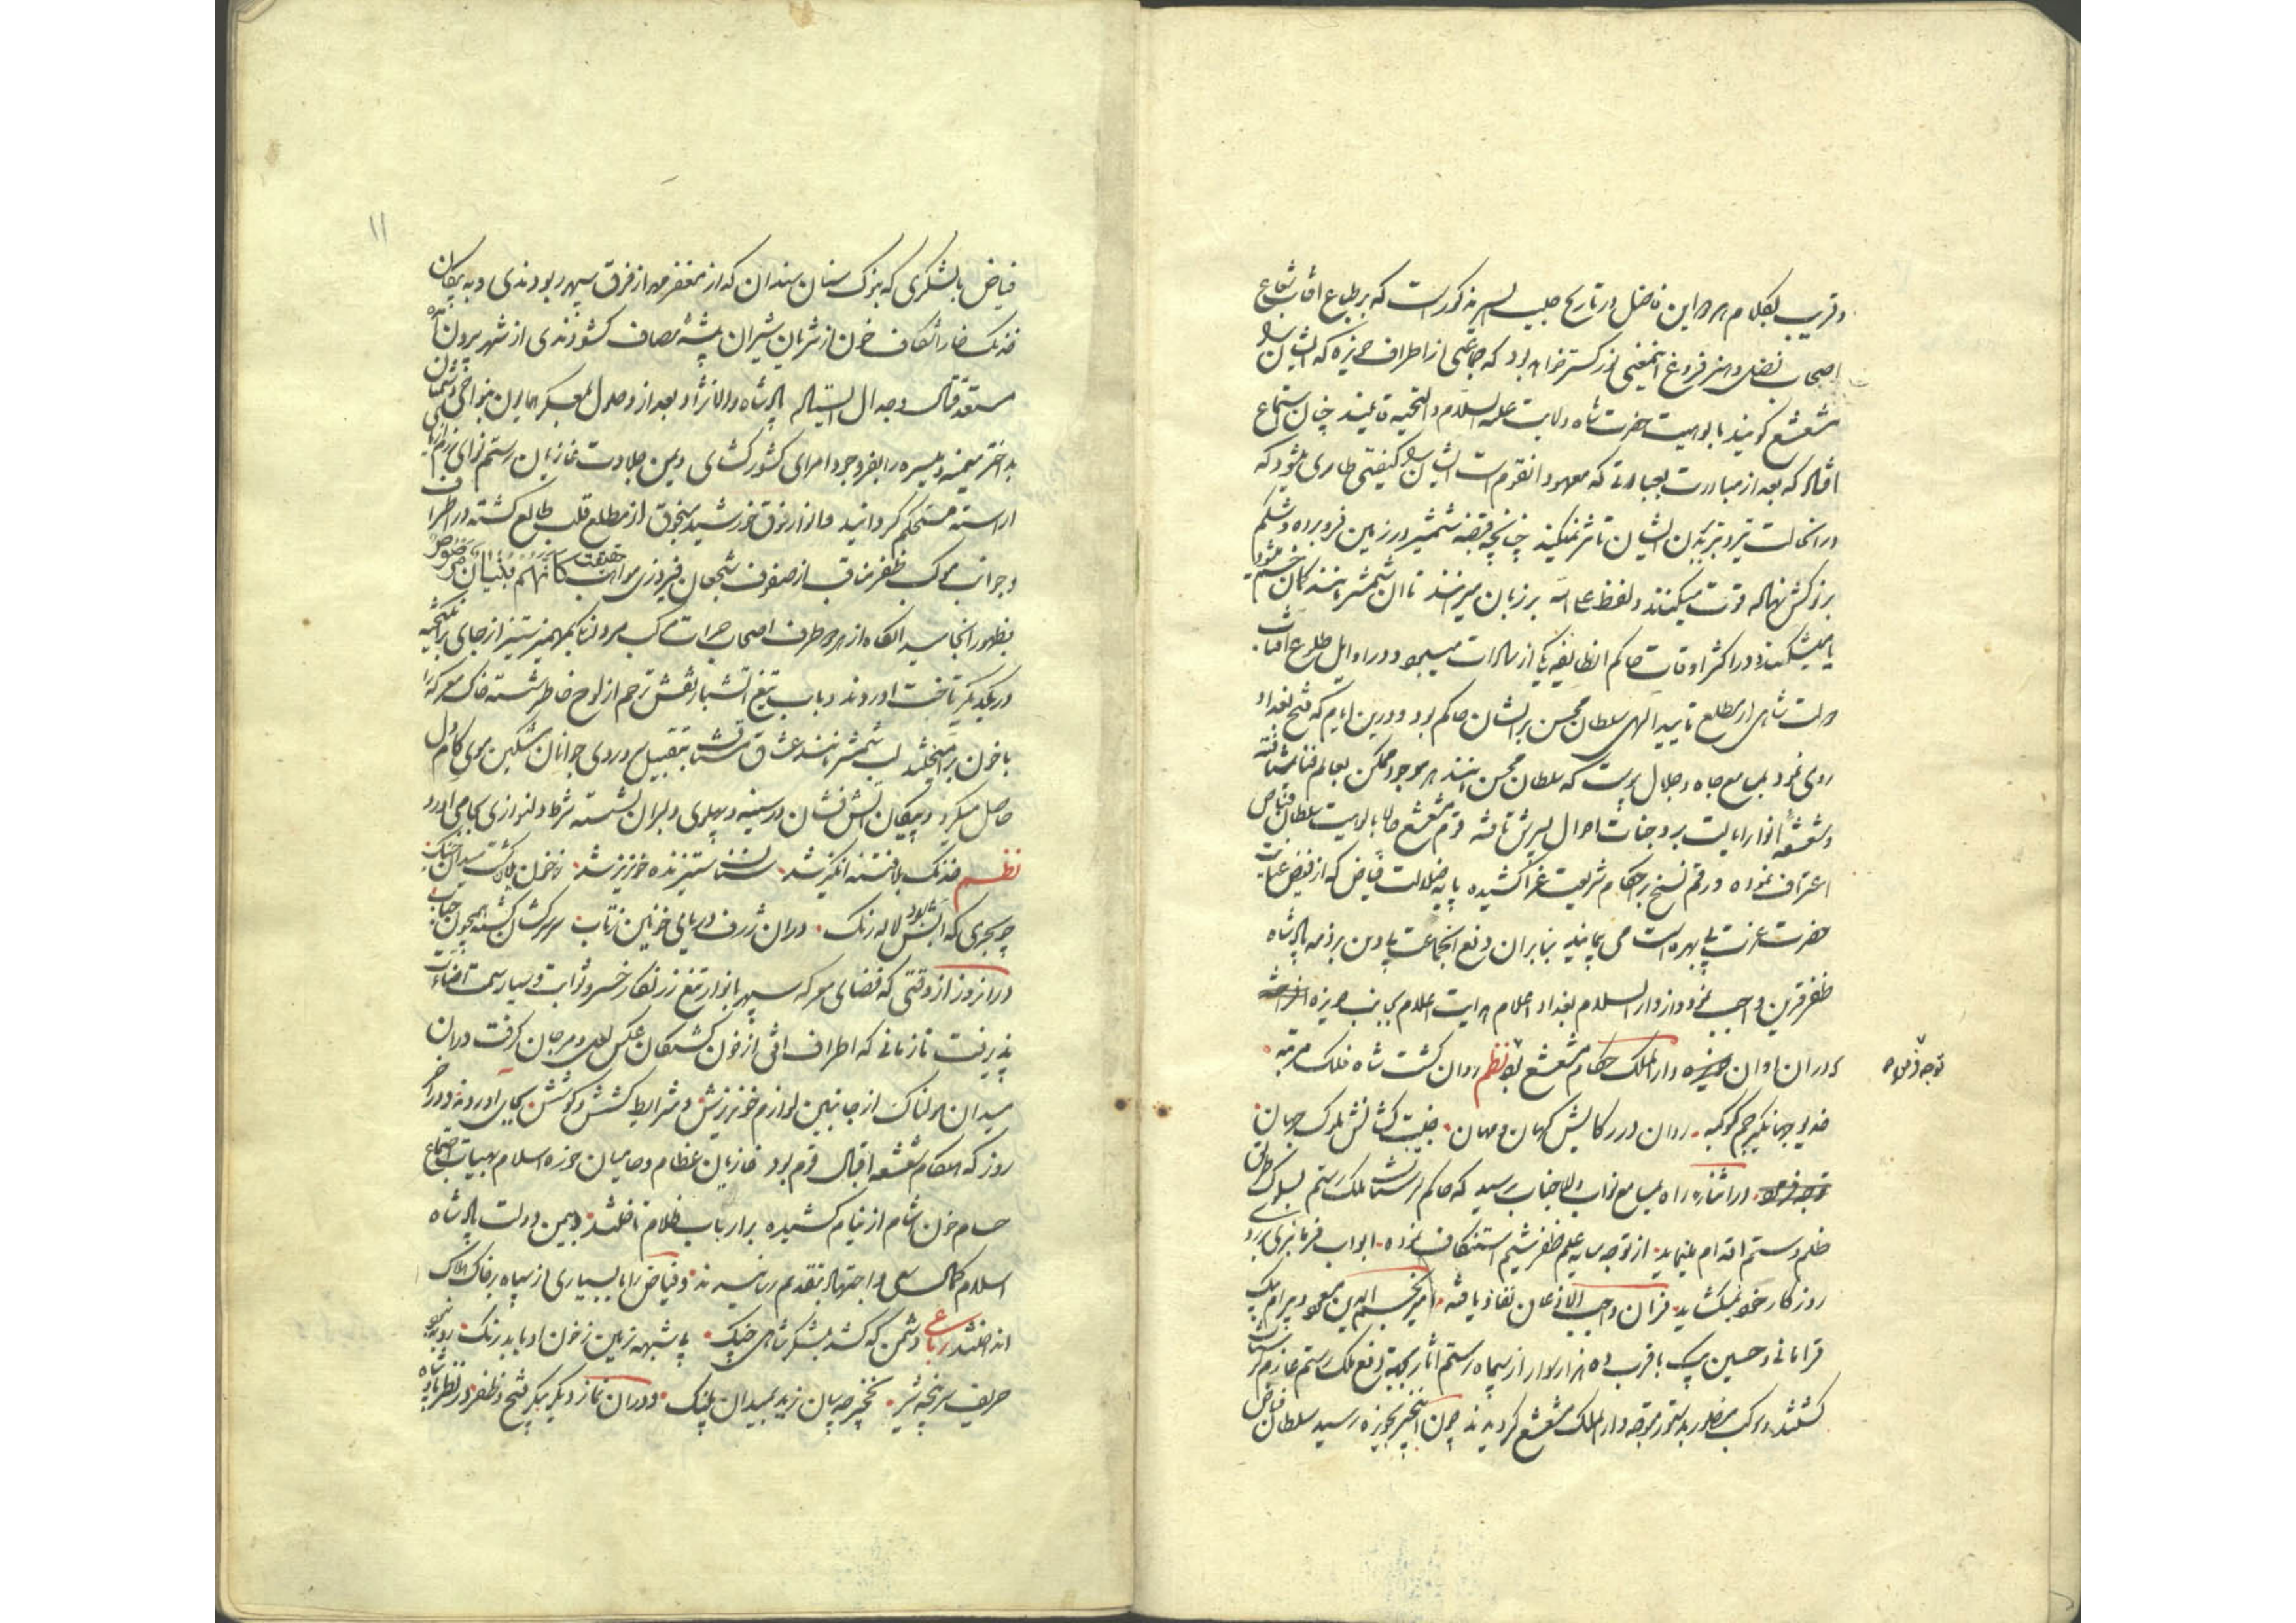 و قریب بکلام هر دو این فاضل در تاریخ حبیب السیر مذکورست که بر طباع آفتاب شعاع
اصحاب فضل و هنر فروغ اینمعنی نور گستر خواهد بود که جماعتی از اطراف حویزه که ایشانرا
مشعشع گویند بالوهیت حضرت شاه ولایت علیه السلام و التحیه قایلند چنان استماع
افتاد که بعد از مبادرت بعبادتی که معهود انقوم است ایشانرا کیفیتی طاری میشود که
درانحالت تیر و تبر ببدن ایشان تاثیر نمیکند چنانچه قبضه شمشیر در زمین فرو برده و شکم
بر نوکش نهاده قوت میکنند و لفظ علی الله بر زبان میرانند تا آن شمشیر مانند کمان خم میشود
یا میشکند و در اکثر اوقات حاکم انطایفه یکی از سادات میبود و در اوایل طلوع آفتاب
دولت شاهی از مطلع تایید الهی سلطان محسن بر ایشان حاکم بود و درین ایام که فتح بغداد
روی نمود بمسامع جاه و جلال پیوست که سلطان محسن مانند هر موجود ممکن بعالم فنا شتافته
و شعشعه انوار ایالت بر وجنات احوال پسرش تافته قوم مشعشع حالا بالوهیت سلطان فیاض
اعتراف نموده و رقم نسخ بر احکام شریعت غرا کشیده پایه ضلالت فیاض که از فیض عنایت
حضرت عزت بی بهره است می پیمایند بنابران دفع انجماعت بی دین بر ذمه پادشاه
ظفر قرین واجب نمود و از دار السلام بغداد اعلام هدایت اعلام بجانب حویزه افراخت
و دران اوان حویزه دار الملک حکام مشعشع بود نظم روان گشت شاه فلک مرتبه
توجه فرموده
خدیو جهانگیر جم کوکبه روان در رکابش کهان و مهان جنیبت کشانش ملوک جهان
توجه فرمود و در اثناء راه بمسامع نواب والاجناب رسید که حاکم لرستان ملک رستم بسلوک طریق
ظلم و ستم اقدام مینماید از توجه سایه علم ظفر شیم استنکاف نموده ابواب فرمانبری بر روی
روزگار خود نمیگشاید فرمان واجب الاذعان نفاذ یافته امیر نجم الدین مسعود و بیرام بیک
قرامانی و حسین بیک با قرب ده هزار سوار از سپاه رستم آثار بجهة دفع ملک رستم عازم لرستان
گشتند و موکب منصور بدستور متوجه دار الملک مشعشع گردیدند چون اینخبر بحویزه رسید سلطان فیاض
۱۱
فیاض با لشکری که بنوک سنان سندان که از مغفر مهر از فرق سپهر ربودندی و به پیکان
خدنک خارا شکاف خون از شریان شیران بیشه مصاف گشودندی از شهر بیرون آمده
مستعد قتال و جدال استقبال پادشاه والانژاد و بعد از وصول معسکر همایون بنواحی دشمنان
بد اختر میمنه و میسره را بفر وجود امرای کشورگشای و یمن جلادت غازیان رستم نوای رزم آزمای
اراسته مستحکم گردانید و انوار فوق خورشید سنجوق از مطلع قلب طالع گشته در اطراف
و جوانب موکب ظفر مناقب از صفوف شجعان فیروزی مواهب حقیقت کَاَنَّهُم بُنیانٌ مَرصوصٌ
بظهور انجامید انگاه از هر دو طرف اصحاب جرات مرکب مردانگی بمهمیز ستیز از جای برانگیخته
در یکدیگر تاخت اوردند و باب تیغ اتشبار نقش ترحم از لوح خاطر شسته خاک معرکه را
با خون برامیختند لب شمشیر مانند عشاق مشتاق بتقبیل سر و روی جوانان مشکین موی کام دل
حاصل میکرد و پیکان آتش فشان در سینه و پهلوی دلیران نشسته شرط دلنوازی بجای می اورد
نظم خدنک بلا فتنه انگیز شد سنان ستیزنده خونریز شد ز خون یلان گشت میدان جنک
چو بحری که آبش بود لاله رنک دران ژرف دریای خونین زتاب سر سرکشان گشته همچون حباب
درانروز از وقتی که فضای معرکه سپهر بانوار تیغ زرنکار خسرو ثوابت و سیار سمت اضاءت
پذیرفت تا زمانی که اطراف افق از خون کشتگان عکس لعل و مرجان گرفت دران
میدان هولناک از جانبین لوازم خونریزش و شرایط کشش و کوشش بجای اوردند و در آخر
روز که هنگام شعشعه اقبال قوم بود غازیان عظام و حامیان حوزه اسلام بهیات اجتماع
حسام خون آشام از نیام کشیده بر ارباب ظلام تاختند و بیمن دولت پادشاه
اسلام کمال سعی و اجتهاد بتقدیم رسانیدند و فیاض را با بسیاری از سپاه بر خاک هلاک
انداختند رباعی دشمن که کشد لشکر شاهی بجنک بی شبهه زمین ز خون او یابد رنک
حریف سر پنجه شیر نخچیر چسان زید بمیدان پلنک و دران نماز دیگر پیکر فتح و ظفر در نظر پادشاه